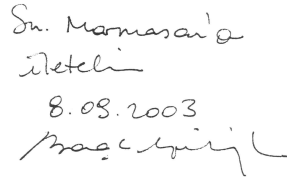 Sn. Marmasan'a
iletelim
8.09.2003